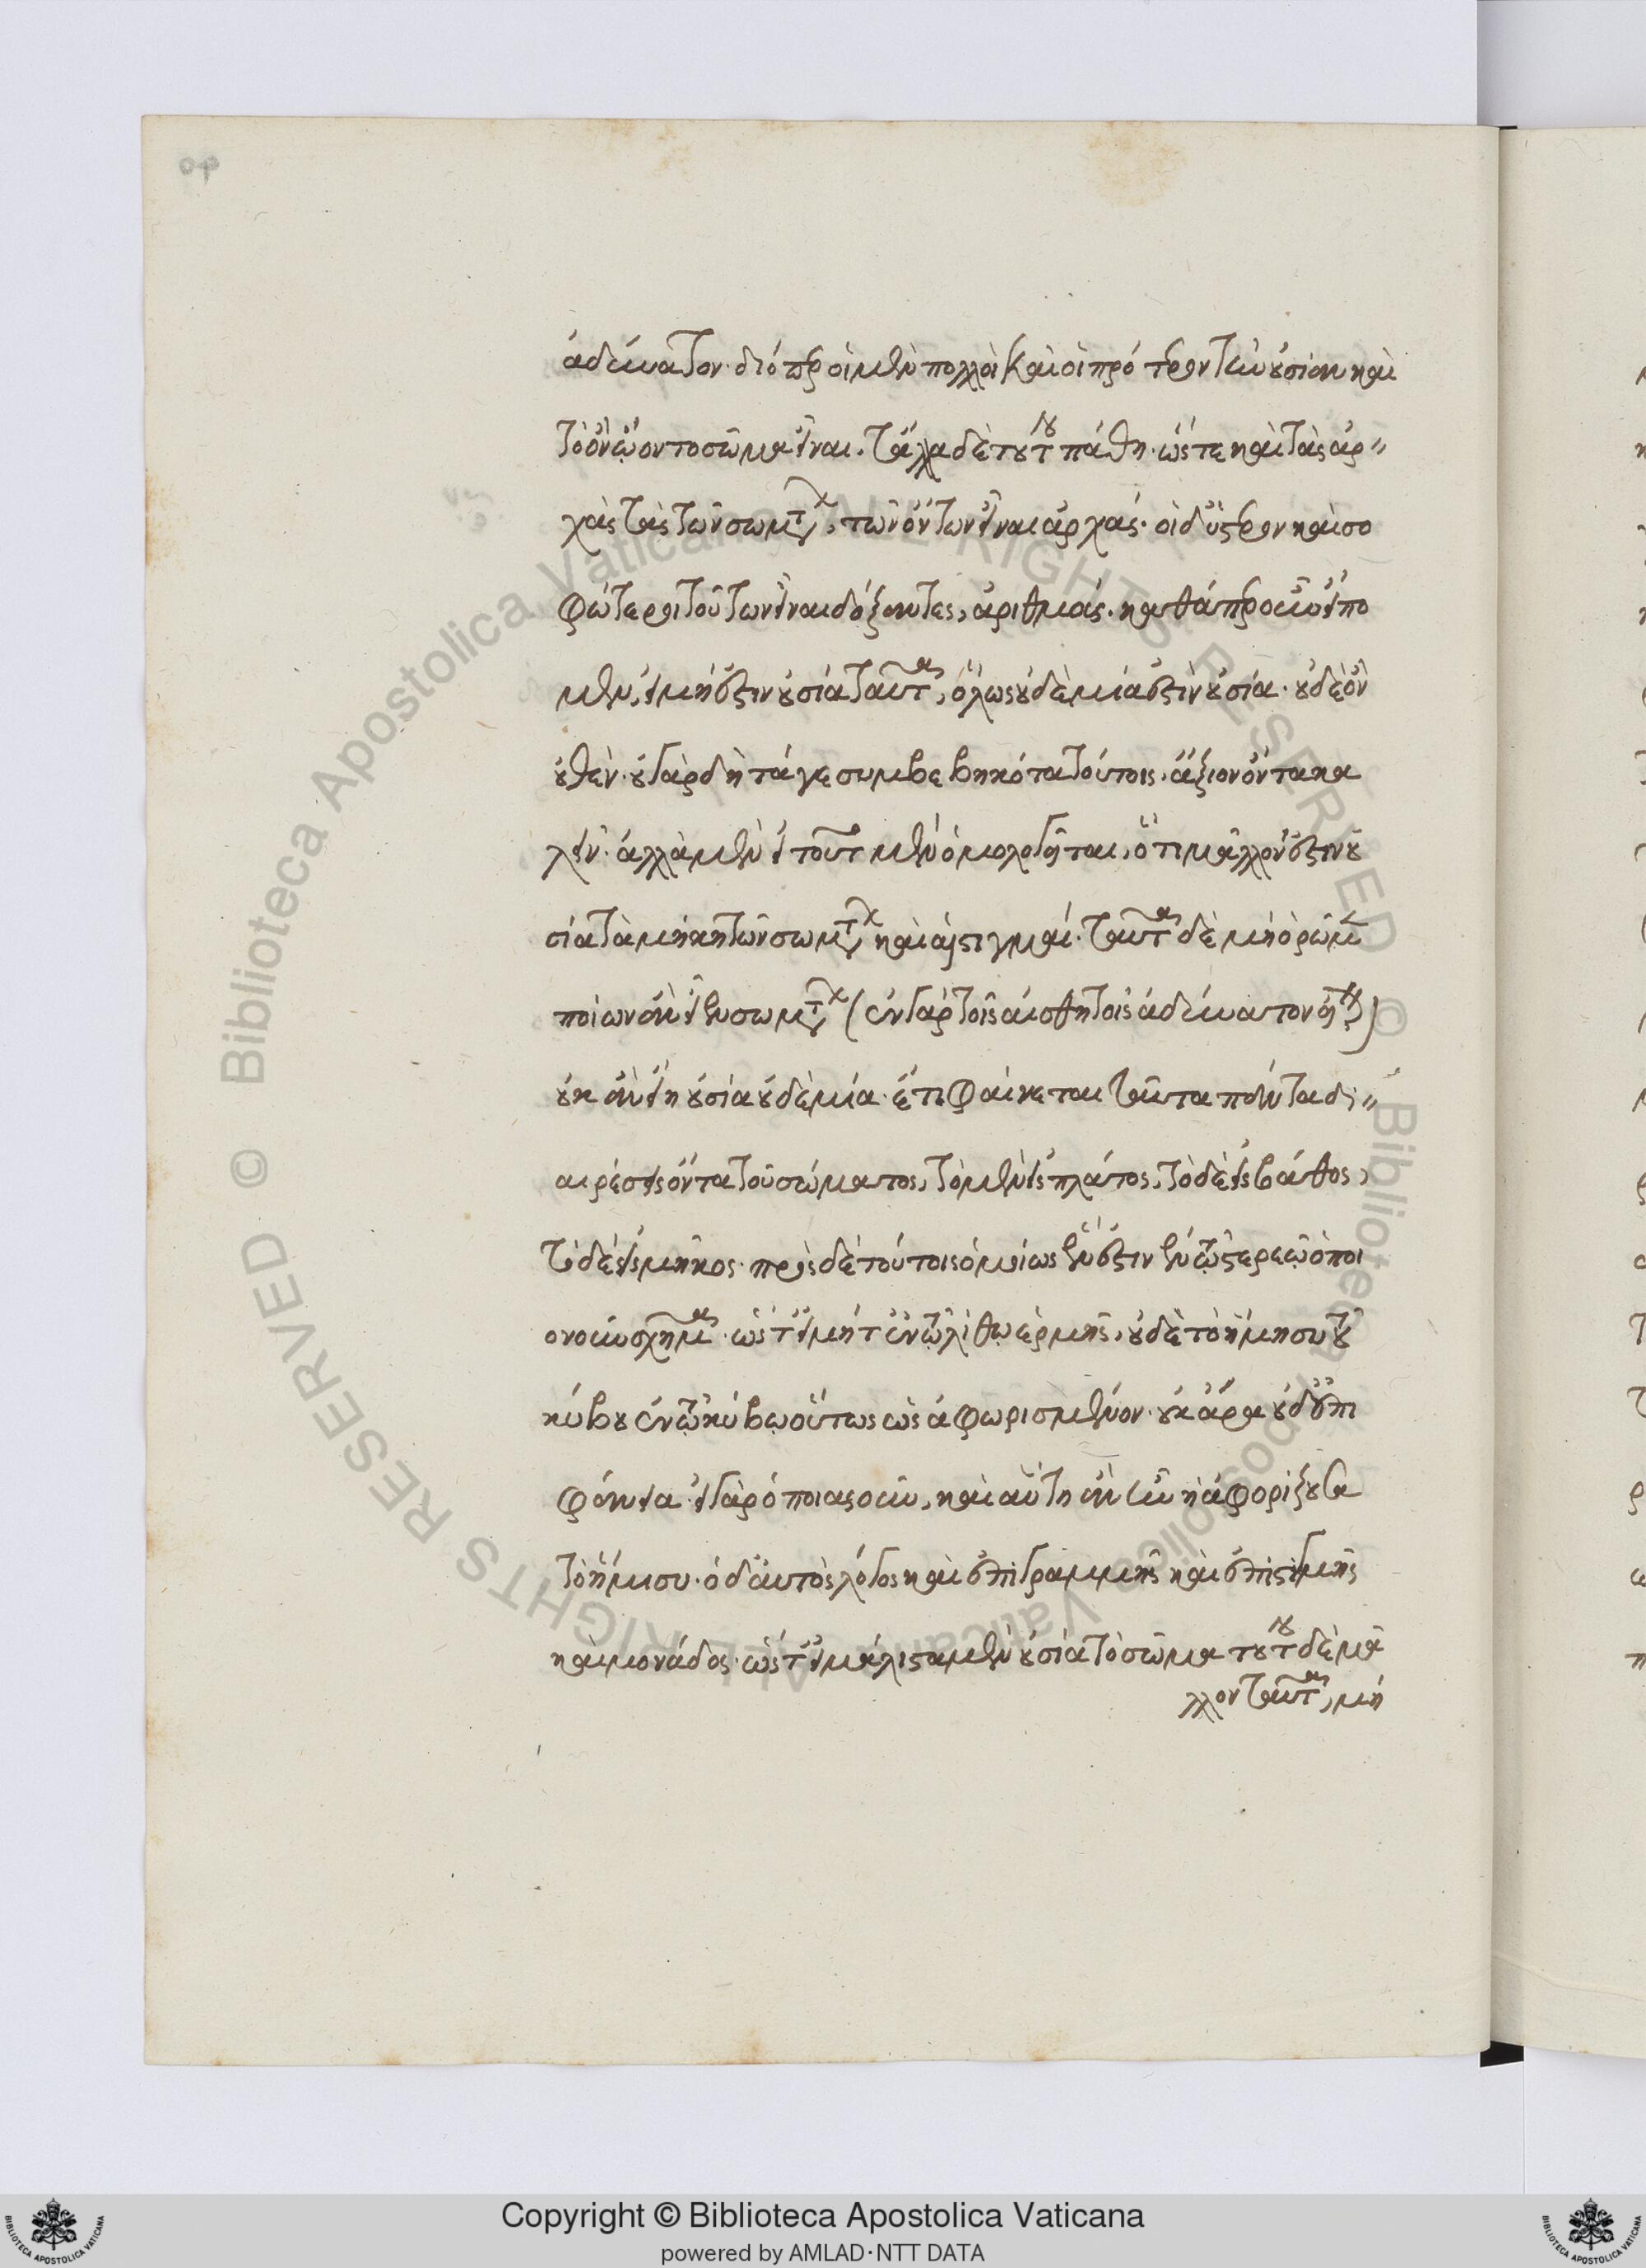 ἀδύνατον· διόπερ οἱ μὲν πολλοὶ καὶ οἱ πρότερον τὴν οὐσίαν καὶ
τὸ ὂν ᾤοντο σῶμα εἶναι. τἄλλα δὲ τούτου πάθη· ὥστε καὶ τὰς ἀρ〃
χὰς τὰς τῶν σωμάτων, τῶν ὄντων εἶναι ἀρχάς· οἱ δ' ὕστερον καὶ σο
φώτεροι τούτων εἶναι δόξαντες, ἀριθμούς. καθάπερ οὖν εἴπο
μεν, εἰ μὴ ἔστιν οὐσία ταῦτα, ὅλως οὐδεμία ἐστὶν οὐσία· οὐδὲ ὂν
οὐθέν· οὐ γὰρ δὴ τά γε συμβεβηκότα τούτοις, ἄξιον ὄντα κα
λεῖν· ἀλλὰ μὲν εἰ τοῦτο μὲν ὁμολογεῖται, ὅτι μᾶλλον ἔστιν οὐ
σία τὰ μήκη τῶν σωμάτων καὶ αἱ στιγμαί. ταῦτα δὲ μὴ ὁρῶμεν
ποίων ἂν εἶεν σωμάτων (ἐν γὰρ τοῖς αἰσθητοῖς ἀδύνατον εἶναι)
οὐκ ἂν εἴη οὐσία οὐδεμία· ἔτι φαίνεται ταῦτα πάντα δι〃
αιρέσεις ὄντα τοῦ σώματος, τὸ μὲν εἰς πλάτος, τὸ δὲ εἰς βάθος,
τὸ δὲ εἰς μῆκος· πρὸς δὲ τούτοις ὁμοίως ἔνεστιν ἐν τῷ στερεῷ ὁποι
ονοῦν σχῆμα· ὥστ' εἰ μήτ' ἐν τῷ λίθῳ ἑρμῆς, οὐδὲ τὸ ἥμησυ τοῦ
κύβου ἐν τῷ κύβῳ οὕτως ὡς ἀφωρισμένον· οὐκ ἄρα οὐδ' ἐπι
φάνεια· εἰ γὰρ ὁποιασοῦν, καὶ αὕτη ἂν ἦν ἡ ἀφορίζουσα
τὸ ἥμισυ· ὁ δ' αὐτὸς λόγος καὶ ἐπὶ γραμμῆς καὶ ἐπὶ στιγμῆς
καὶ μονάδος· ὥστ' εἰ μάλιστα μὲν οὐσία τὸ σῶμα τούτου δὲ μᾶ
λλον ταῦτα, μὴ
Copyright © Biblioteca Apostolica Vaticana
powered by AMLAD·NTT DATA